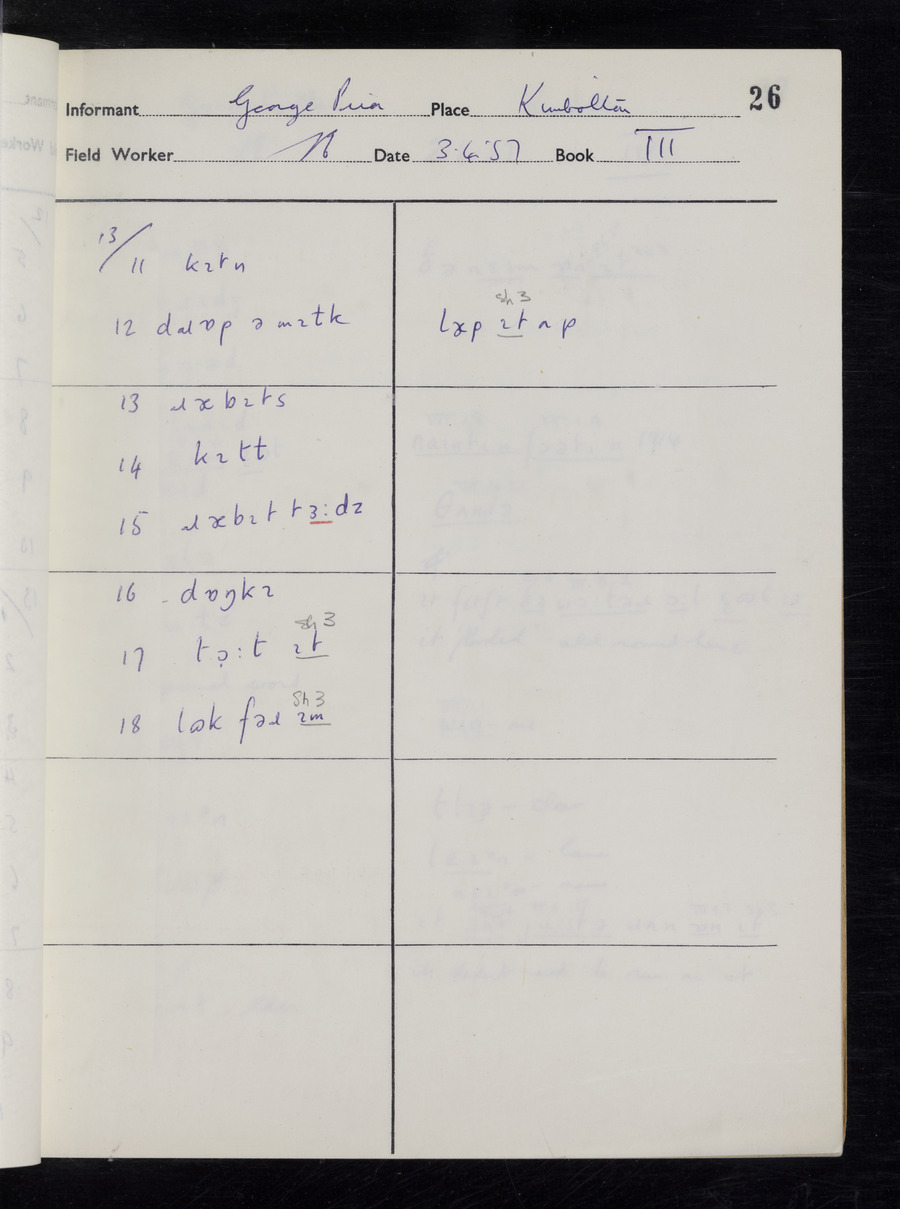 Informant George Prior Place Kimbolton 26
Field Worker Date 3.4.57 Book III
13/
11 kɪtn
12 dɹɒp ə mɪlk
sh 3
læp ɪt ʌp
13 ɹæbɪts
14 kɪtl
15 ɹæbɪt tɜ:dz
16 dɒŋkɪ
sh 3
17 tɔ̣:t ɪt
Sh 3
18 lʊk fəɹ ɪm